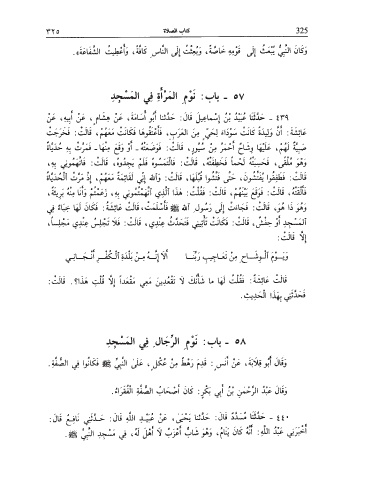 325 كتاب الصلاة ٣٢٥
وَكَانَ النَّبِيُّ يُبْعَثُ إِلَى قَوْمِهِ خَاصَّةً، وَبُعِثْتُ إِلَى النَّاسِ كَافَّةً، وَأُعْطِيتُ الشَّفَاعَةَ».
٥٧ - باب: نَوْمِ المَرْأَةِ فِي المَسْجِدِ
٤٣٩ - حَدَّثَنَا عُبَيْدُ بْنُ إِسْمَاعِيلَ قَالَ: حَدَّثَنَا أَبُو أُسَامَةَ، عَنْ هِشَامٍ، عَنْ أَبِيهِ، عَنْ
عَائِشَةَ: أَنَّ وَلِيدَةً كَانَتْ سَوْدَاءَ لِحَيٍّ مِنَ العَرَبِ، فَأَعْتَقُوهَا فَكَانَتْ مَعَهُمْ، قَالَتْ: فَخَرَجَتْ
صَبِيَّةٌ لَهُمْ، عَلَيْهَا وِشَاحٌ أَحْمَرُ مِنْ سُيُورٍ، قَالَتْ: فَوَضَعَتْهُ - أَوْ وَقَعَ مِنْهَا - فَمَرَّتْ بِهِ حُدَيَّاةٌ
وَهْوَ مُلْقًى، فَحَسِبَتْهُ لَحْماً فَخَطِفَتْهُ، قَالَتْ: فَالتَمَسُوهُ فَلَمْ يَجِدُوهُ، قَالَتْ: فَاتَّهَمُونِي بِهِ،
قَالَتْ: فَطَفِقُوا يُفَتِّشُونَ، حَتَّى فَتَّشُوا قُبُلَهَا، قَالَتْ: وَاللهِ إِنِّي لَقَائِمَةٌ مَعَهُمْ، إِذْ مَرَّتِ الحُدَيَّاةُ
فَأَلْقَتْهُ، قَالَتْ: فَوَقَعَ بَيْنَهُمْ، قَالَتْ: فَقُلْتُ: هَذَا الَّذِي اتَّهَمْتُمُونِي بِهِ، زَعَمْتُمْ وَأَنَا مِنْهُ بَرِيئَةٌ،
وَهْوَ ذَا هُوَ، قَالَتْ: فَجَاءَتْ إِلَى رَسُولِ اللهِ ﷺ فَأَسْلَمَتْ، قَالَتْ عَائِشَةُ: فَكَانَ لَهَا خِبَاءٌ فِي
المَسْجِدِ أَوْ حِفْشٌ، قَالَتْ: فَكَانَتْ تَأْتِينِي فَتَحَدَّثُ عِنْدِي، قَالَتْ: فَلَا تَجْلِسُ عِنْدِي مَجْلِساً،
إِلَّا قَالَتْ:
وَيَوْمَ الْوِشَاحِ مِنْ تَعَاجِيبِ رَبِّنَا أَلَا إِنَّهُ مِنْ بَلْدَةِ الْكُفْرِ أَنْجَانِي
قَالَتْ عَائِشَةُ: فَقُلْتُ لَهَا مَا شَأْنُكِ لَا تَقْعُدِينَ مَعِي مَقْعَداً إِلَّا قُلْتِ هَذَا؟. قَالَتْ:
فَحَدَّثَتْنِي بِهَذَا الْحَدِيثِ.
٥٨ - باب: نَوْمِ الرِّجَالِ فِي المَسْجِدِ
وَقَالَ أَبُو قِلَابَةَ، عَنْ أَنَسٍ: قَدِمَ رَهْطٌ مِنْ عُكْلٍ، عَلَى النَّبِيِّ ﷺ فَكَانُوا فِي الصُّفَّةِ.
وَقَالَ عَبْدُ الرَّحْمَنِ بْنُ أَبِي بَكْرٍ: كَانَ أَصْحَابُ الصُّفَّةِ الْفُقَرَاءَ.
٤٤٠ - حَدَّثَنَا مُسَدَّدٌ قَالَ: حَدَّثَنَا يَحْيَى، عَنْ عُبَيْدِ اللهِ قَالَ: حَدَّثَنِي نَافِعٌ قَالَ:
أَخْبَرَنِي عَبْدُ اللهِ: أَنَّهُ كَانَ يَنَامُ، وَهْوَ شَابٌّ أَعْزَبُ لَا أَهْلَ لَهُ، فِي مَسْجِدِ النَّبِيِّ ﷺ.